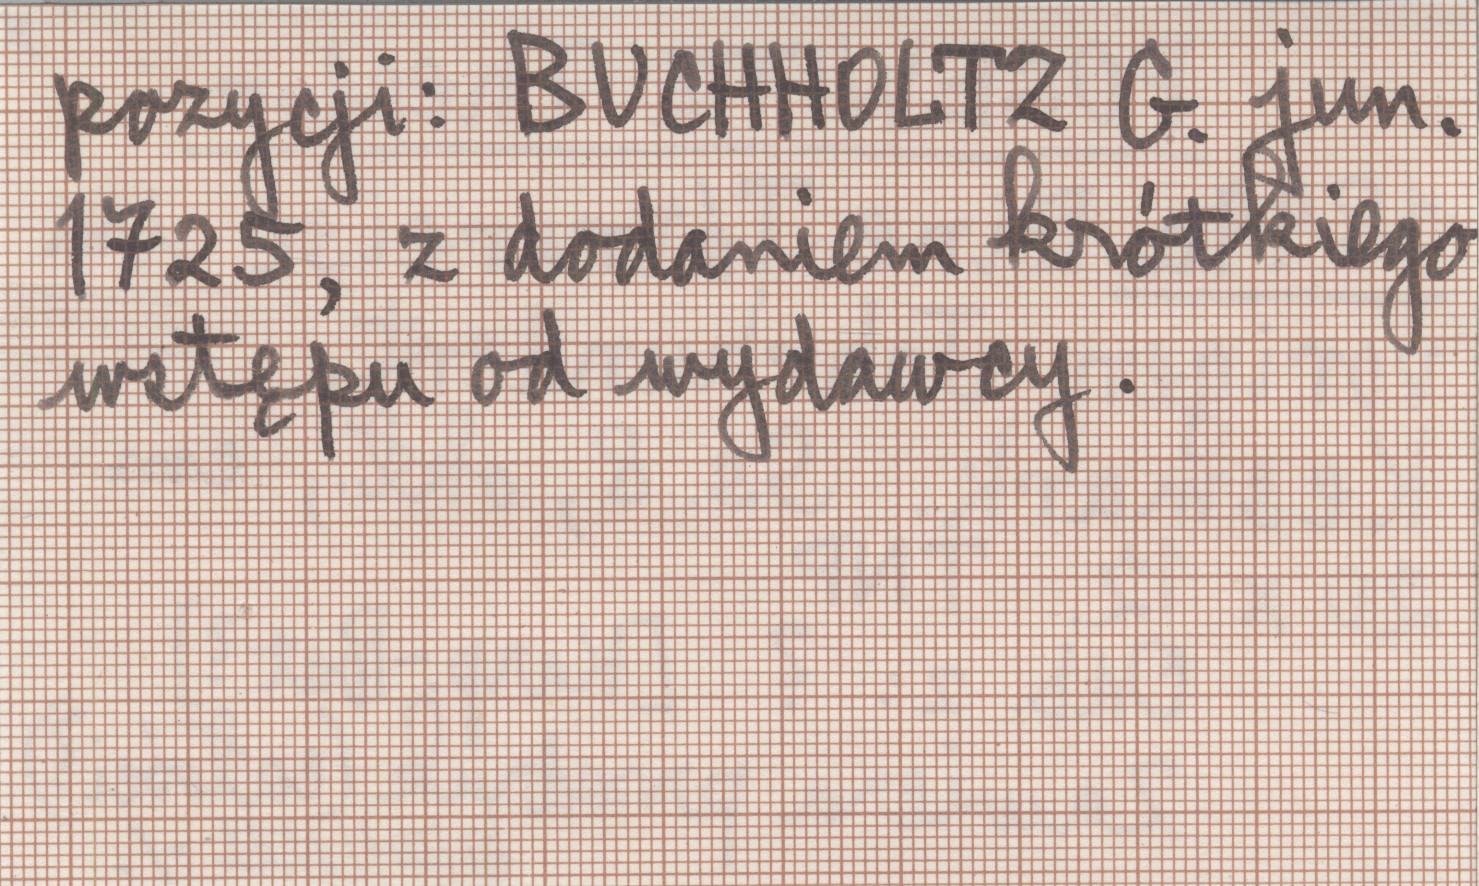 pozycji: BUCHHOLTZ G. jun.
1725, z dodaniem krótkiego
wstępu od wydawcy.